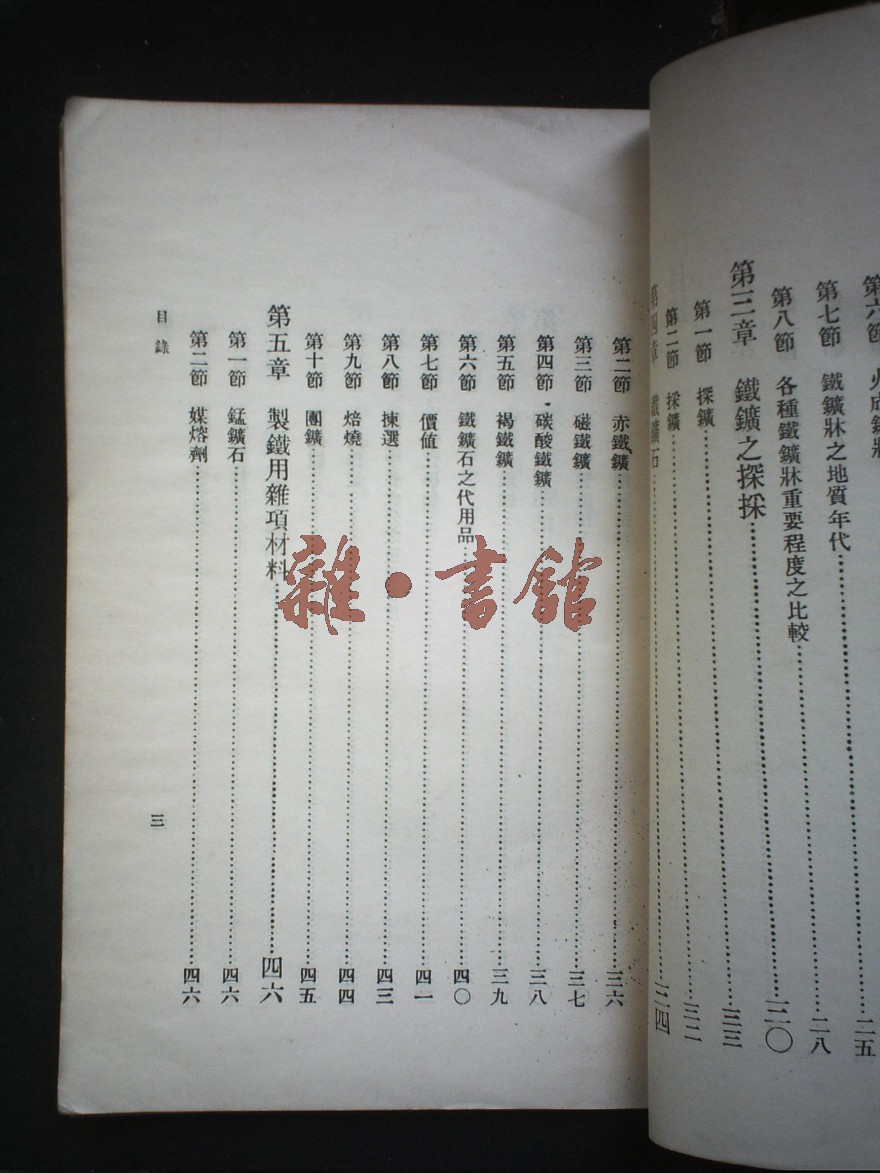 第六節
第七節 鐵鑛牀之地質年代……二五
第八節 各種鐵鑛牀重要程度之比較……二八
第三章 鐵鑛之探採……三〇
第一節 探鑛
第二節 採鑛……三二
第四章 鐵鑛石……三四
第二節 赤鐵鑛……三六
第三節 磁鐵鑛……三七
第四節 碳酸鐵鑛……三八
第五節 褐鐵鑛……三九
第六節 鐵鑛石之代用品……四〇
第七節 價値……四一
第八節 揀選……四三
第九節 焙燒……四四
第十節 團鑛……四五
第五章 製鐵用雜項材料……四六
第一節 錳鑛石……四六
第二節 媒熔劑……四六
目錄 三
雜·書館